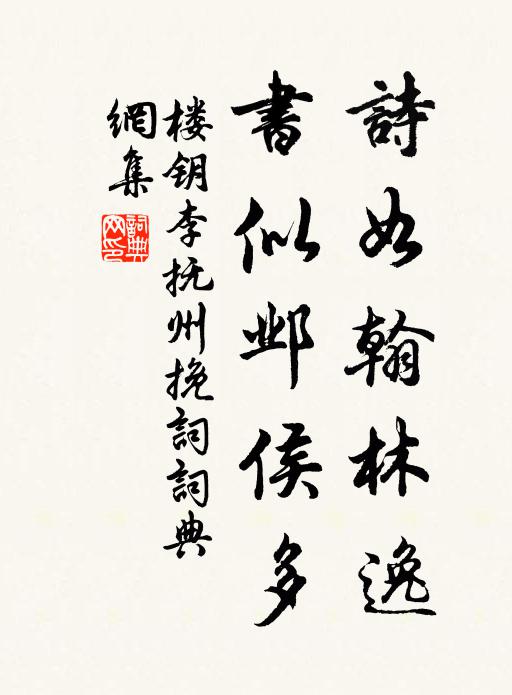 詩如翰林逸
書似邺侯多
楼钥李抚州挽詞詞典
網集
詞典
网印